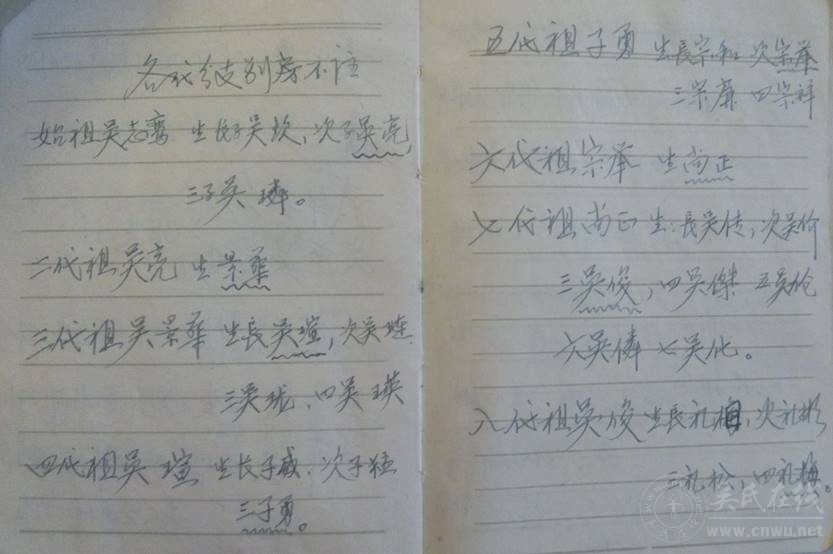 各代分支别房不注
始祖吴志鸾 生长子吴坎、次子吴亮,
三子吴璘。
二代祖吴亮 生景華
三代祖吴景華 生長吴瑄,次吴琏
三吴珑、四吴瑛
四代祖吴瑄 生长子威、次子猛
三子勇。
五代祖子勇 生長宗和 次宗举
三宗廉 四宗祥
六代祖宗举 生尚正
七代祖尚正 生:長吴传,次吴价
三吴俊,四吴傑 五吴伦
六吴僯 七吴化。
八代祖吴俊 生長礼 次礼彬
三礼松,四礼梅。
吴氏在线
www.cnwu.net